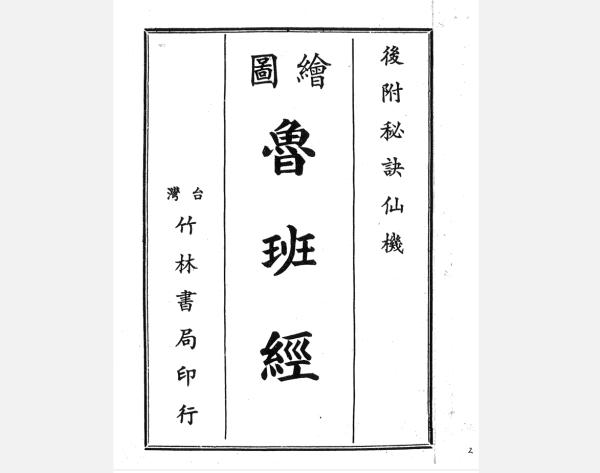 後附秘訣仙機
繪圖
魯班經
台灣
竹林書局印行
2